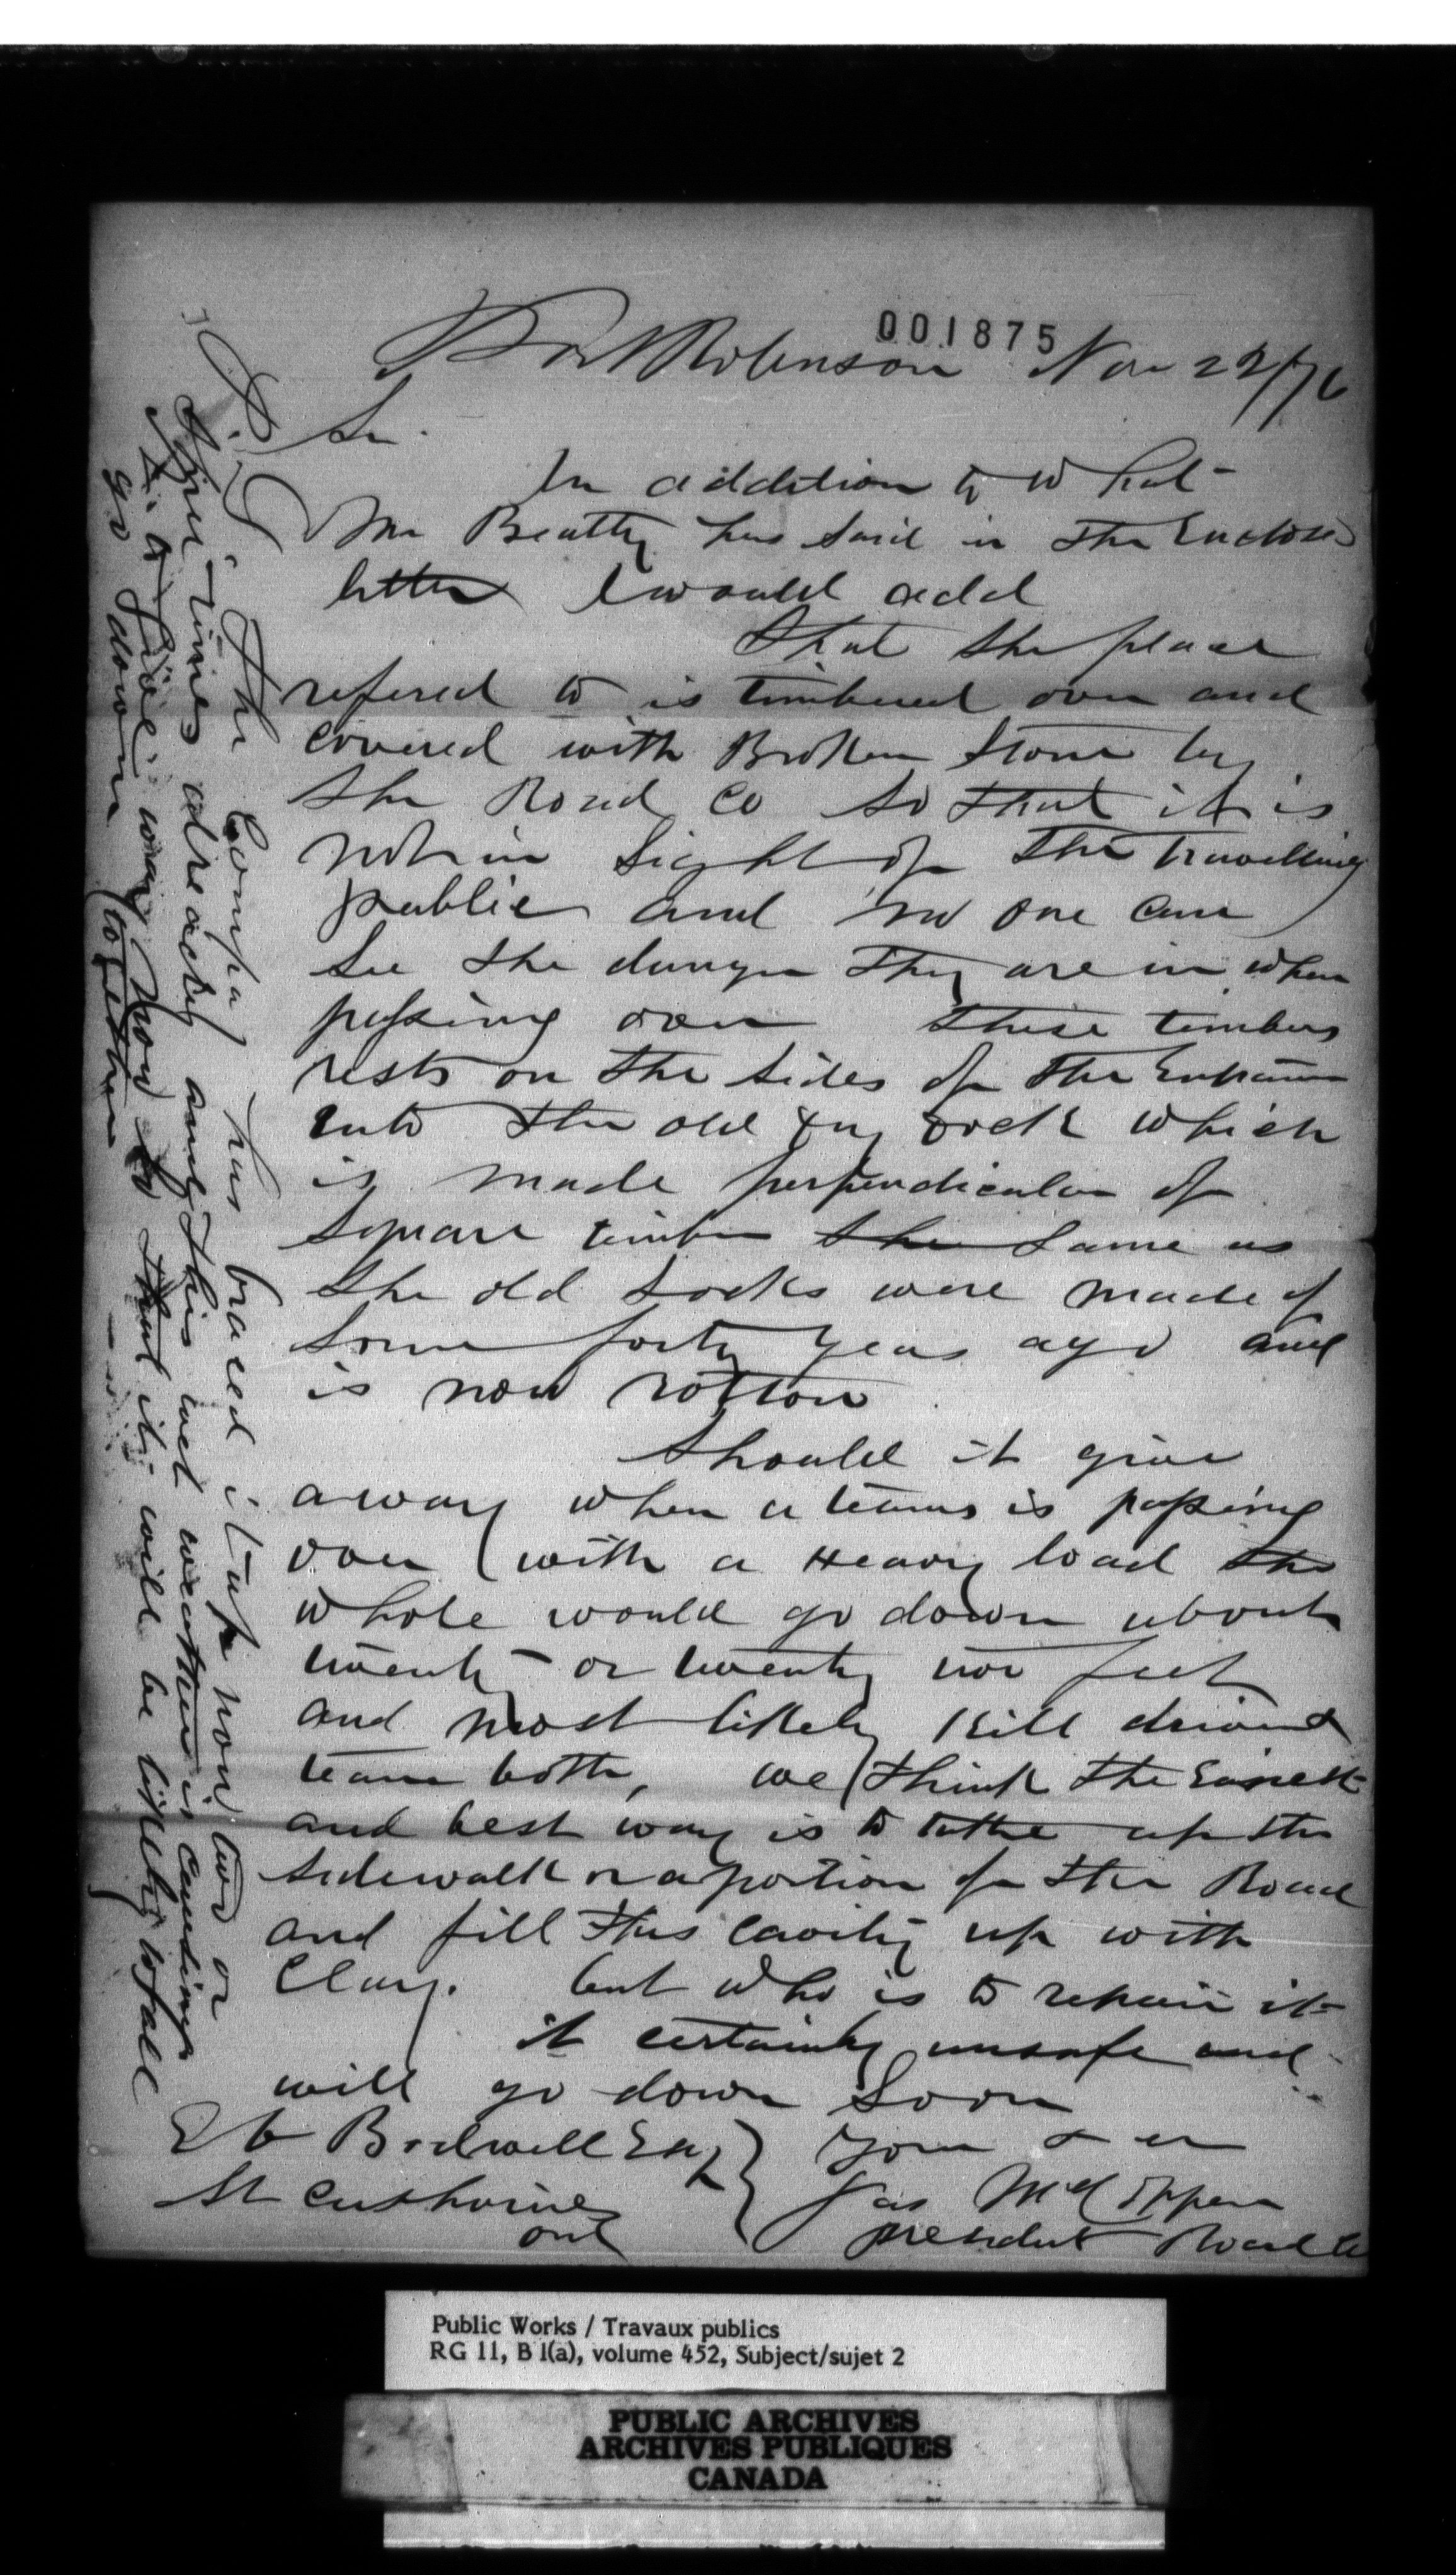 001875
Port Robinson Nov 22/76
Sir
In addition to what
Mr Beatty has said in the Enclosed
letter I would add
that the place
refered to is timbered over and
covered with Broken Stone by
the Road Co so that it is
not in Sight of the travelling
public and no one can
See the danger they are in when
passing over these timbers
rests on the sides of the Entrance
into the old dry dock which
is made perpendicular of
square timber the same as
the old Locks were made of
some forty years ago and
is now rotton
Should it give
away when a teams is passing
over with a Heavy load the
whole would go down about
twenty or twenty two feet
and most likely kill driver &
team both, we think the Easiest
and best way is to take up the
sidewalk or a portion of the Road
and fill this cavity up with
Clay. but who is to repair it
it certainly unsafe and
will go down Soon
Bodwell Esq
St Catharines
Ont
Your
Jas
president Road Co
P.S. The Company has braced it up now two or
times already and this wet weather is Causing
it to give way now so that it will be likely to fall
go down together
Public Works / Travaux publics
RG 11, B 1(a), volume 452, Subject/sujet 2
PUBLIC ARCHIVES
ARCHIVES PUBLIQUES
CANADA